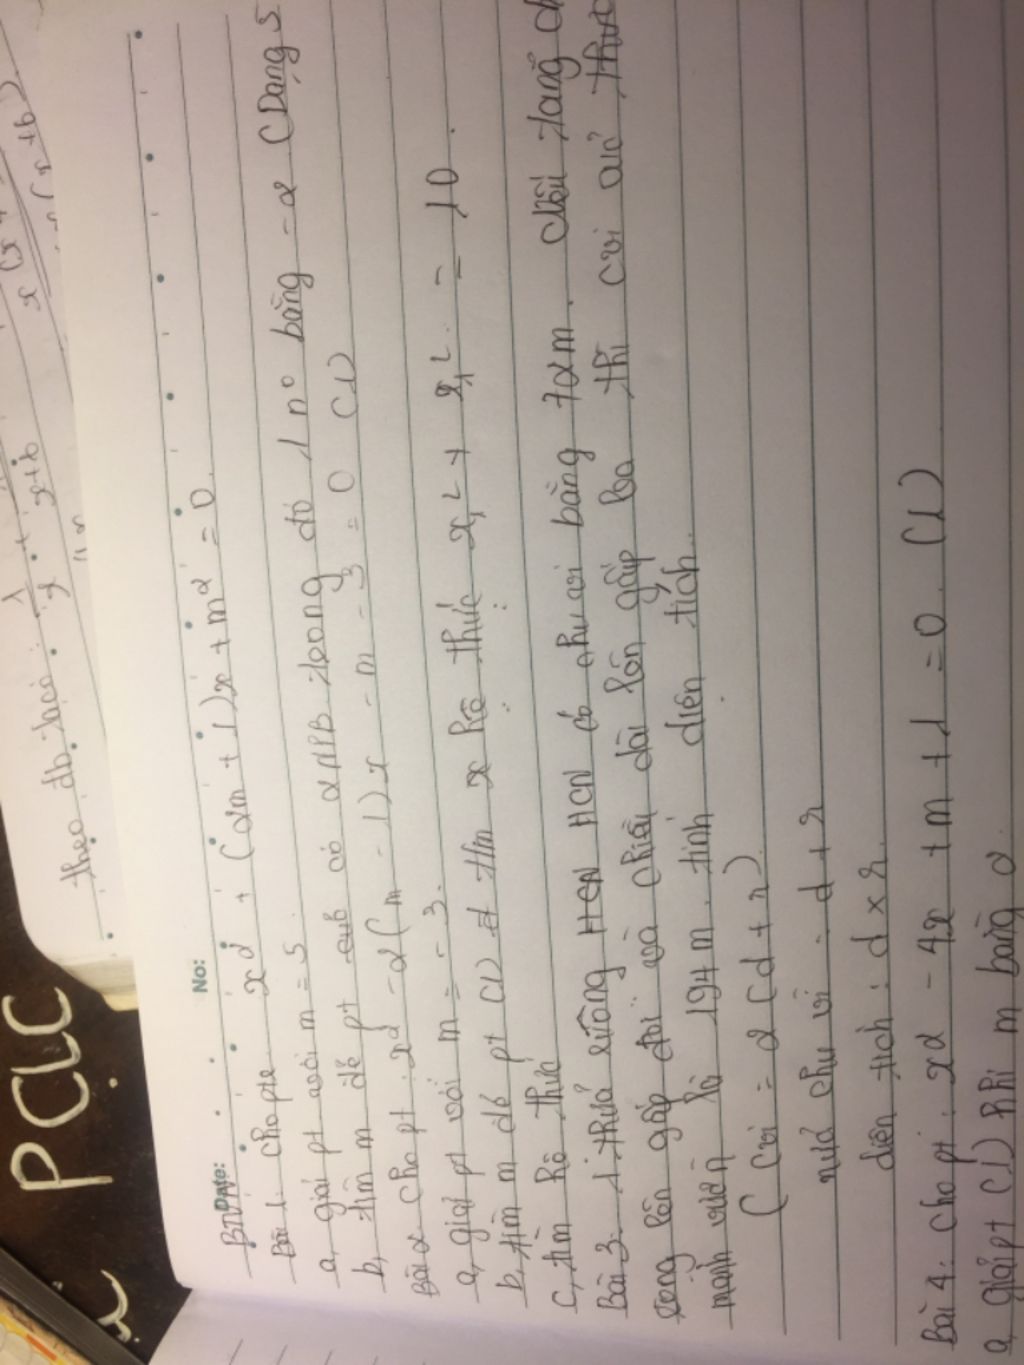 theo đb bài:
PCLC
Date:
No:
BTVN
Bài 1. cho pte x² + (2m + 1)x + m² = 0.
a, giải pt với m = 5.
b, tìm m để pt có 2 NPB trong đó 1 nº bằng -2 (Dạng 5
Bài 2 Cho pt: x² - 2(m - 1)x - m - 3 = 0 (1)
a, giải pt với m = -3.
b, tìm m để pt (1) tm x hệ thức x₁² + x₂² = 10.
c, tìm hệ thức
Bài 3. 1 thửa ruộng HCN có chu vi bằng 72m. Nếu tăng ch
rộng lên gấp đôi và chiều dài lên gấp ba thì cvi của thửa
mảnh vườn là 194m. tính diện tích.
(cvi = 2(d + r)
nửa chu vi: d + r
diện tích: d × r.
Bài 4. cho pt: x² - 4x + m + 1 = 0. (1)
a, giải pt (1) khi m bằng 2